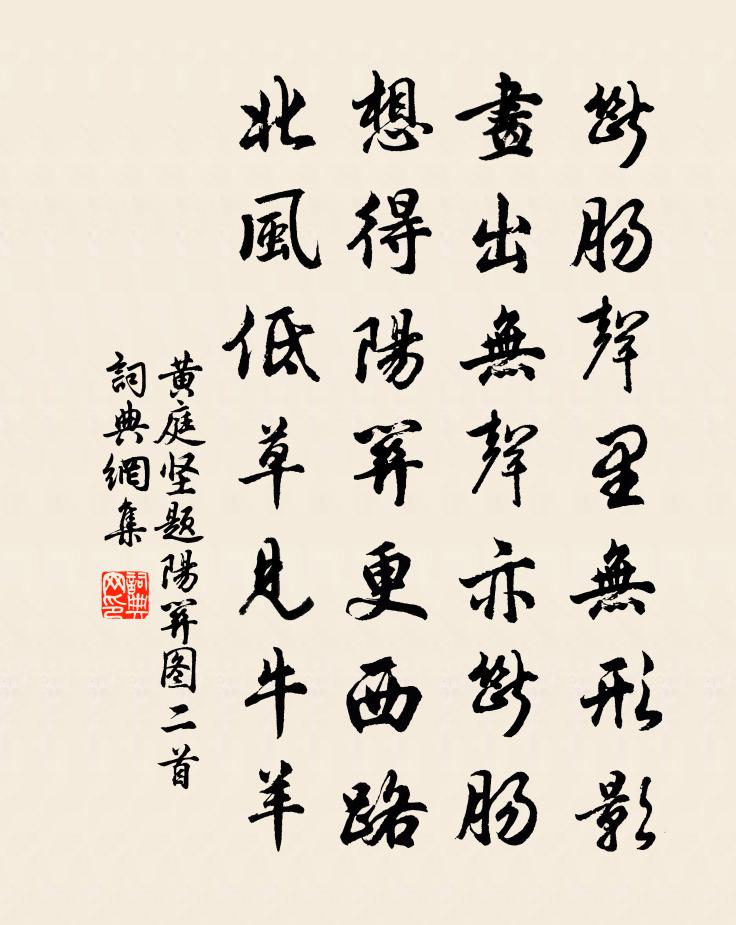 斷腸聲里無形影
畫出無聲亦斷腸
想得陽關更西路
北風低草見牛羊
黄庭坚題陽關图二首
詞典網集
詞典網印